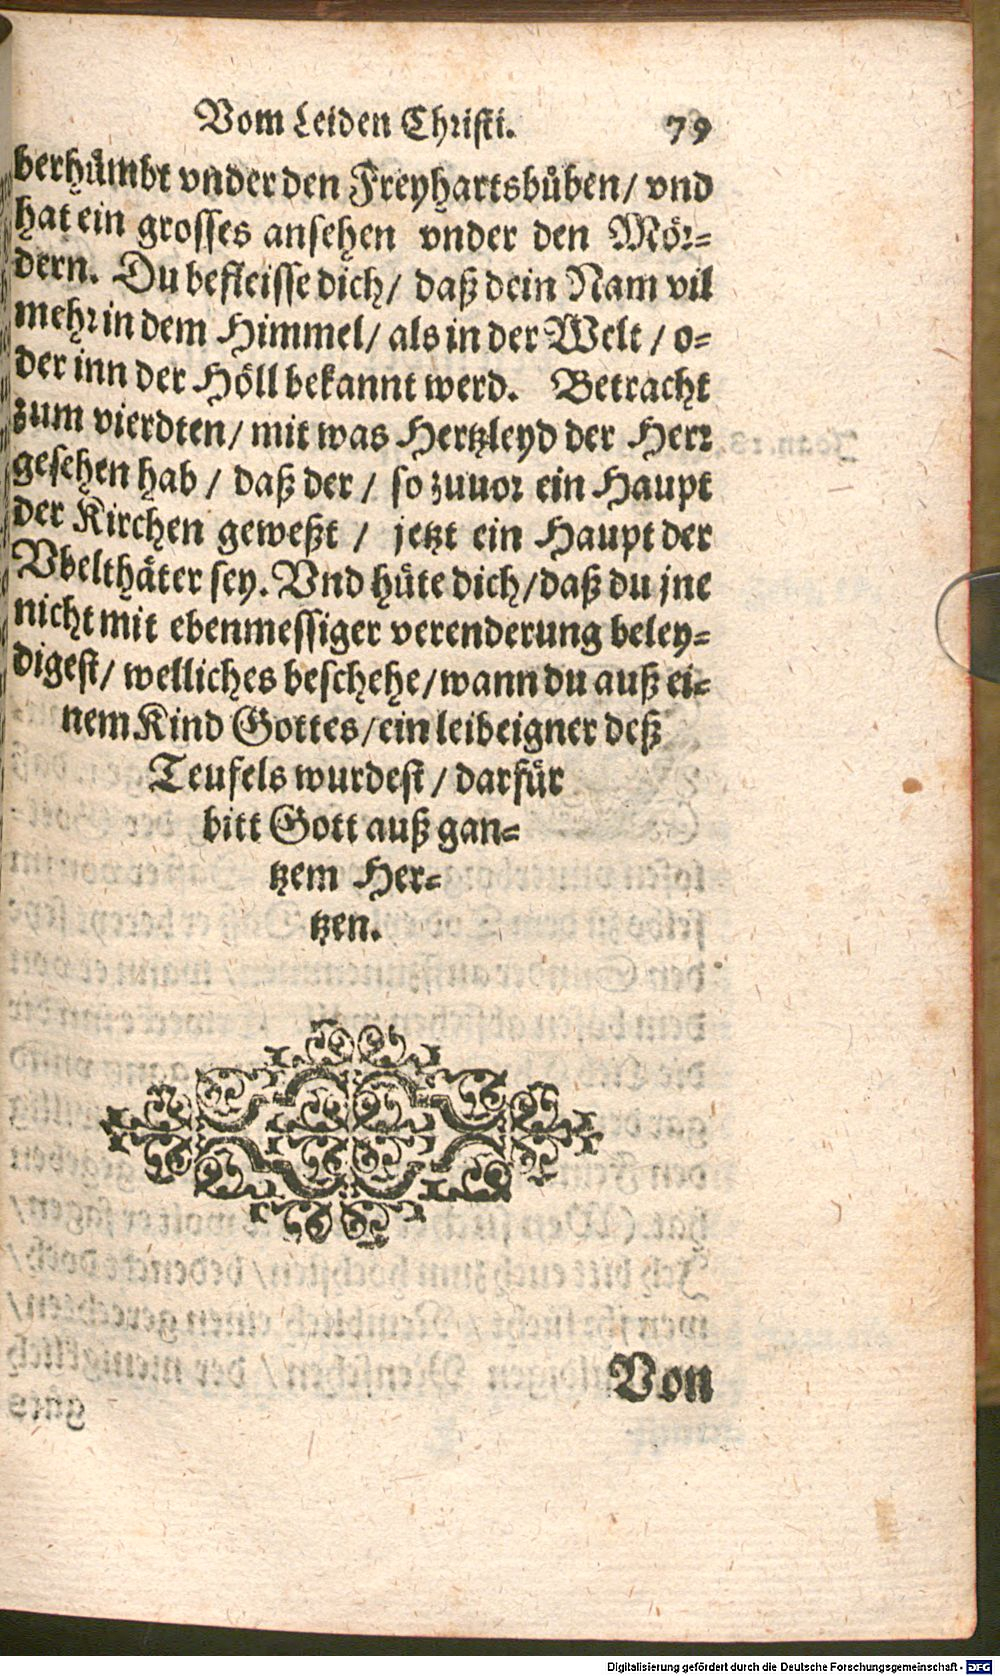 Vom Leiden Christi. 79
berhümbt vnder den Freyhartsbůben/ vnd
hat ein grosses ansehen vnder den Mör-
dern. Du befleisse dich/ daß dein Nam vil
mehr in dem Himmel/ als in der Welt/ o-
der inn der Höll bekannt werd. Betracht
zum vierdten/ mit was Hertzleyd der Herr
gesehen hab/ daß der/ so zuuor ein Haupt
der Kirchen geweßt/ jetzt ein Haupt der
Vbelthäter sey. Vnd hüte dich/ daß du jne
nicht mit ebenmessiger verenderung beley-
digest/ welliches beschehe/ wann du auß ei-
nem Kind Gottes/ ein leibeigner deß
Teufels wurdest/ darfür
bitt Gott auß gan-
tzem Her-
tzen.
Von
Digitalisierung gefördert durch die Deutsche Forschungsgemeinschaft - DFG